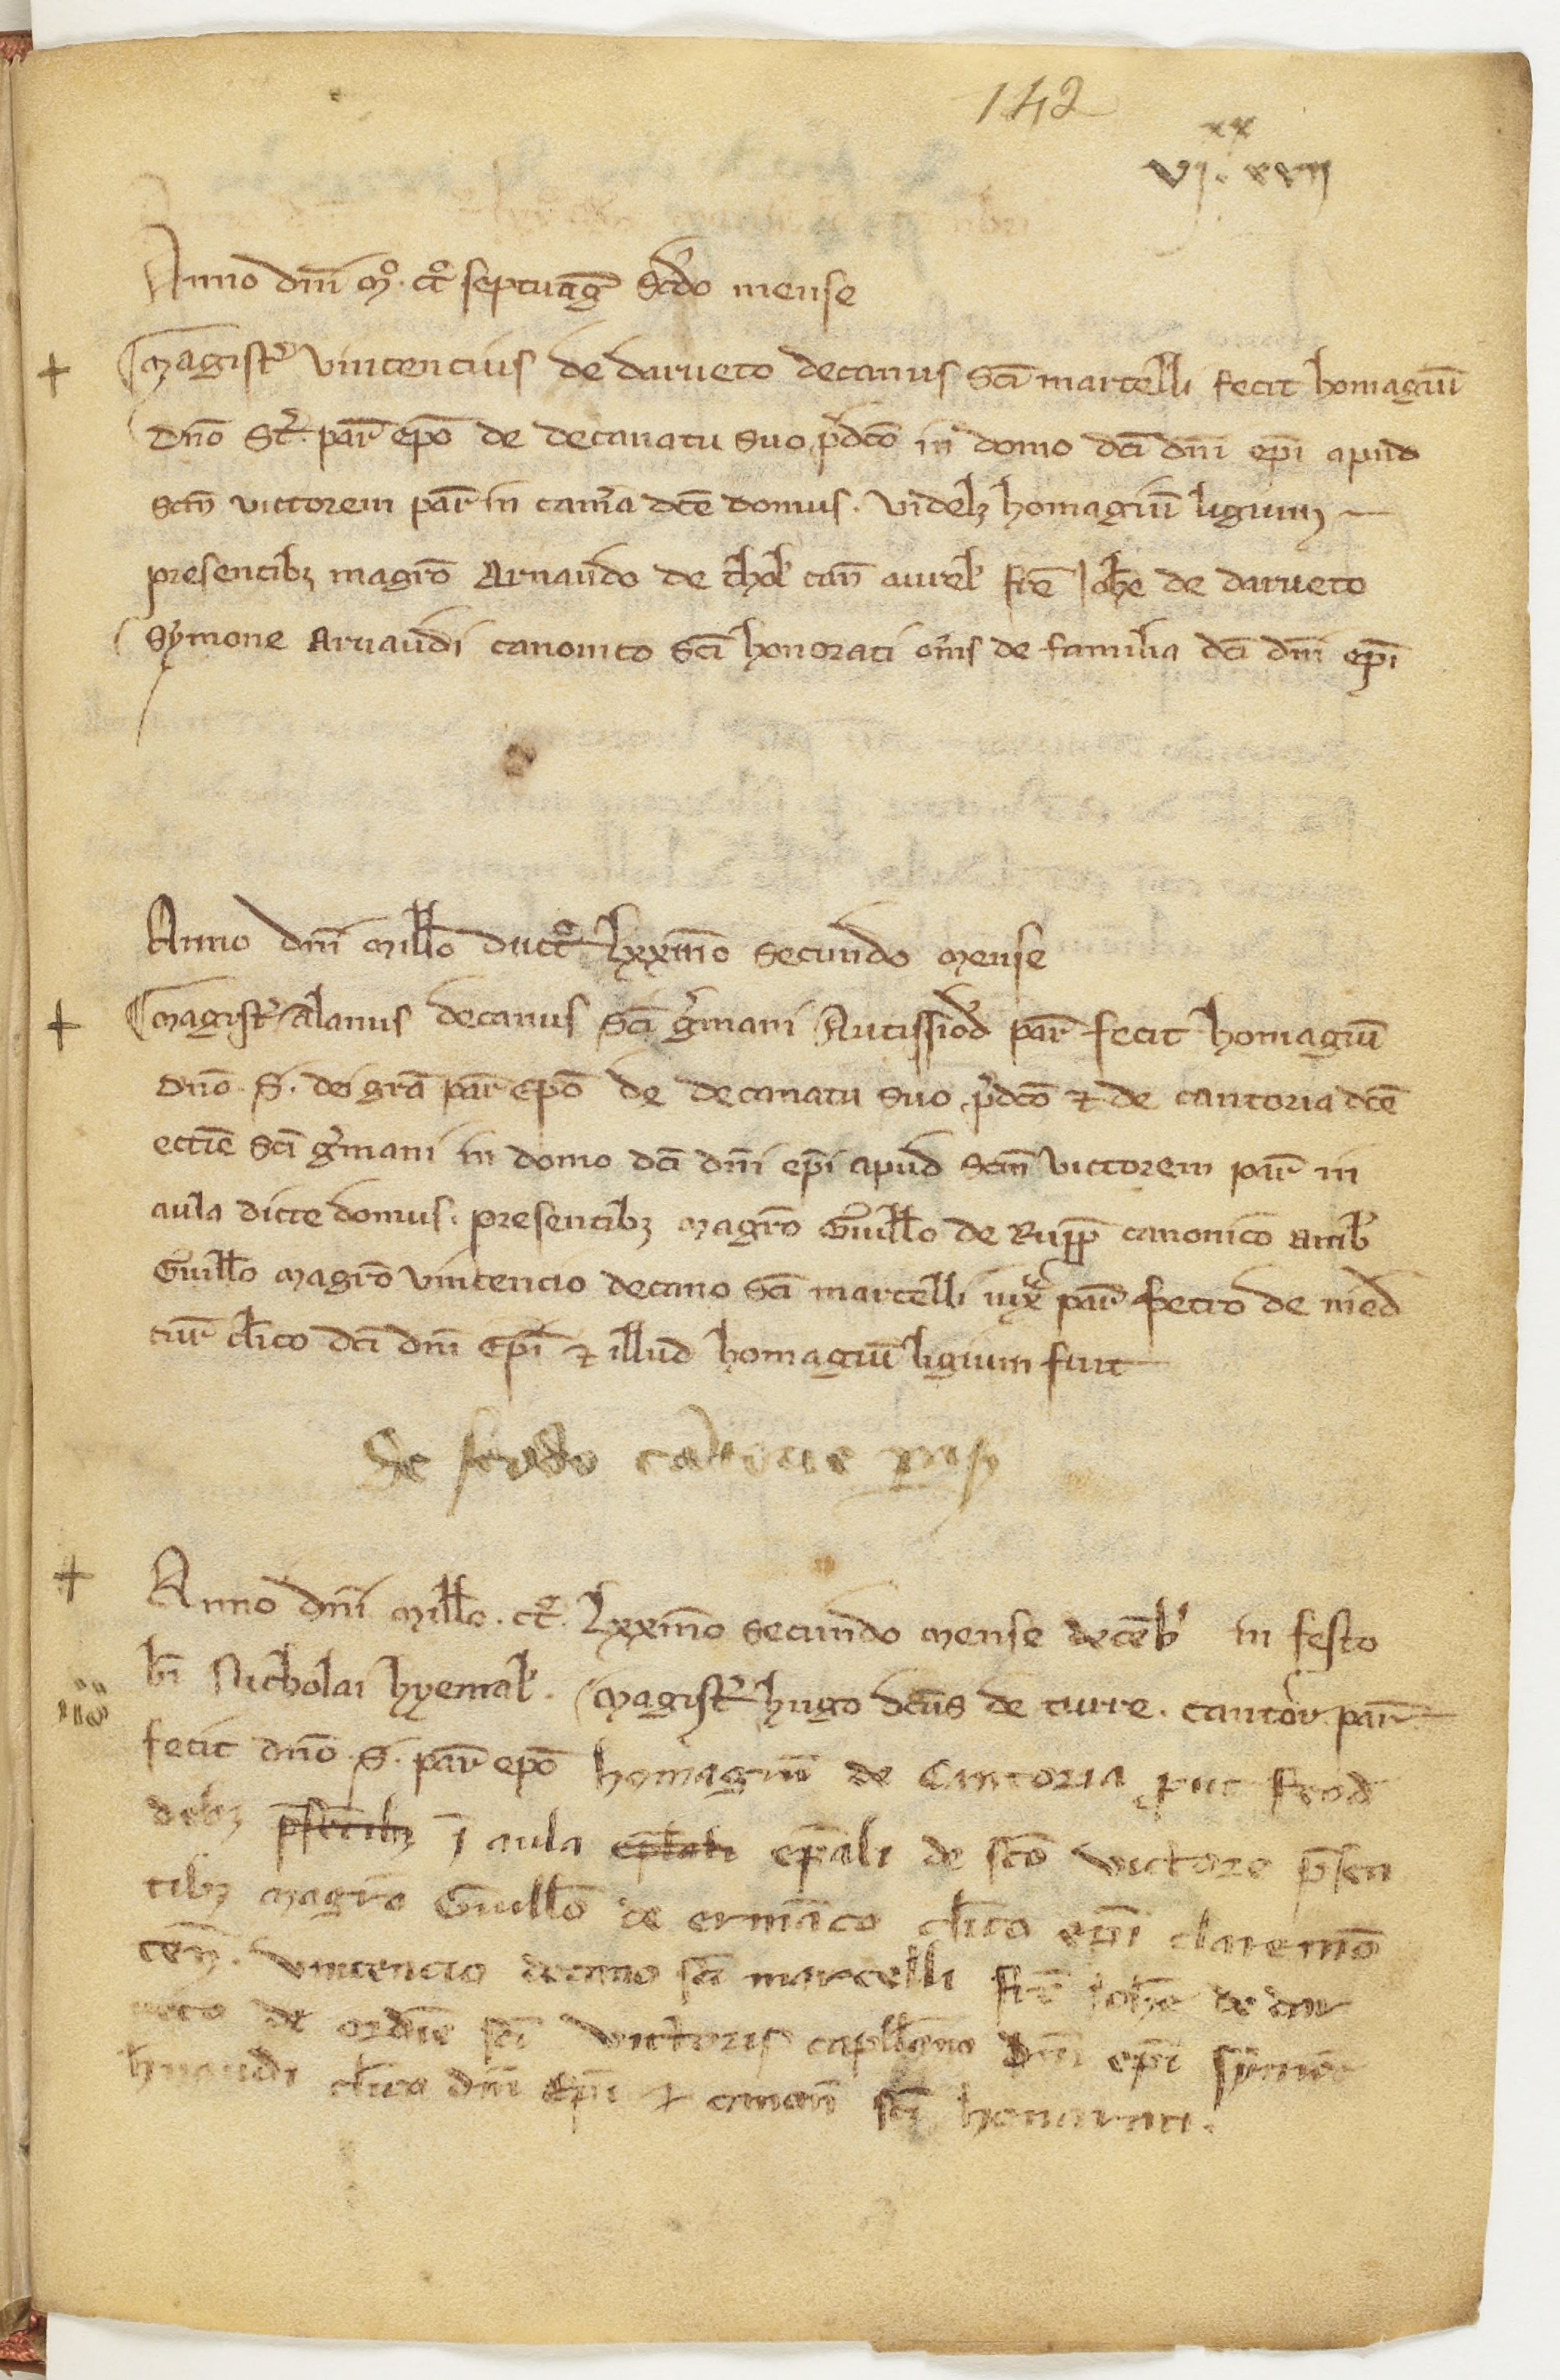 142
xx
vj. xxij
Anno dnī mº. ccº septuag̅ scdo mense
+ magistr̛ vincencius de darueto decanus sc̄i marcelli fecit homagiū
dn̄o St̛. par̄ ep̄o de decanatu suo p̛dc̄o in domo dc̄i dn̄i ep̄i apud
sc̄m victorem par̄ in cam̛a dc̄e domus. videlꝫ homagiū ligium
presentibꝫ magr̄o Arnaudo de can̄ aurel̛ fr̄e Joh̄e de darueto
Symone Arnaudi canonico sc̄i honorati om̄s de familia dc̄i dn̄i ep̄i
Anno dn̄i mill̄o ducēº Lxxm̄o secundo mense
+ magistr̛ Alanus decanus sc̄i g̛mani Autissiod̛ par̄ fecit homagiū
dn̄o. S. dei gr̄a par̄ ep̄o de decanatu suo p̛dc̄o ⁊ de cantoria dc̄e
eccīe sc̄i g̛mani in domo dc̄i dn̄i ep̄i apud sc̄m victorem par̄ in
aula dicte domus. presentibꝫ magr̄o Guill̄o de Rupp̄ canonico
Guill̄o magr̄o vincencio decano sc̄i marcelli iux̄ par̄ petro de med
cur̄ cl̄ico dc̄i dn̄i ep̄i ⁊ illud homagiū ligium fuit
De feudo cantorie paris̛
+ Anno dn̄i mill̄o. ccº. Lxxm̄o secundo mense decēb̛ in festo
bī Nicholai hyemal̛. magistr̛ hugo dc̄us de ture. cantor par̄
fecit dn̄o. S. par̄ ep̄o homagiū de Cantoria ꝓut feod
debꝫ p̄sētibꝫ ī aula ep̄ali de sc̄o victore p̄sen
tibꝫ magr̄o Guill̄o de cl̄ico ep̄i claremō
ceñ. vincencio decano sc̄i marcelli fr̄e Joh̄e de dar
ueto de ordīe sc̄i victoris capll̄ano dn̄i ep̄i symōe
cl̄ico dn̄i ep̄i ⁊ canon̄ sc̄i honorati.